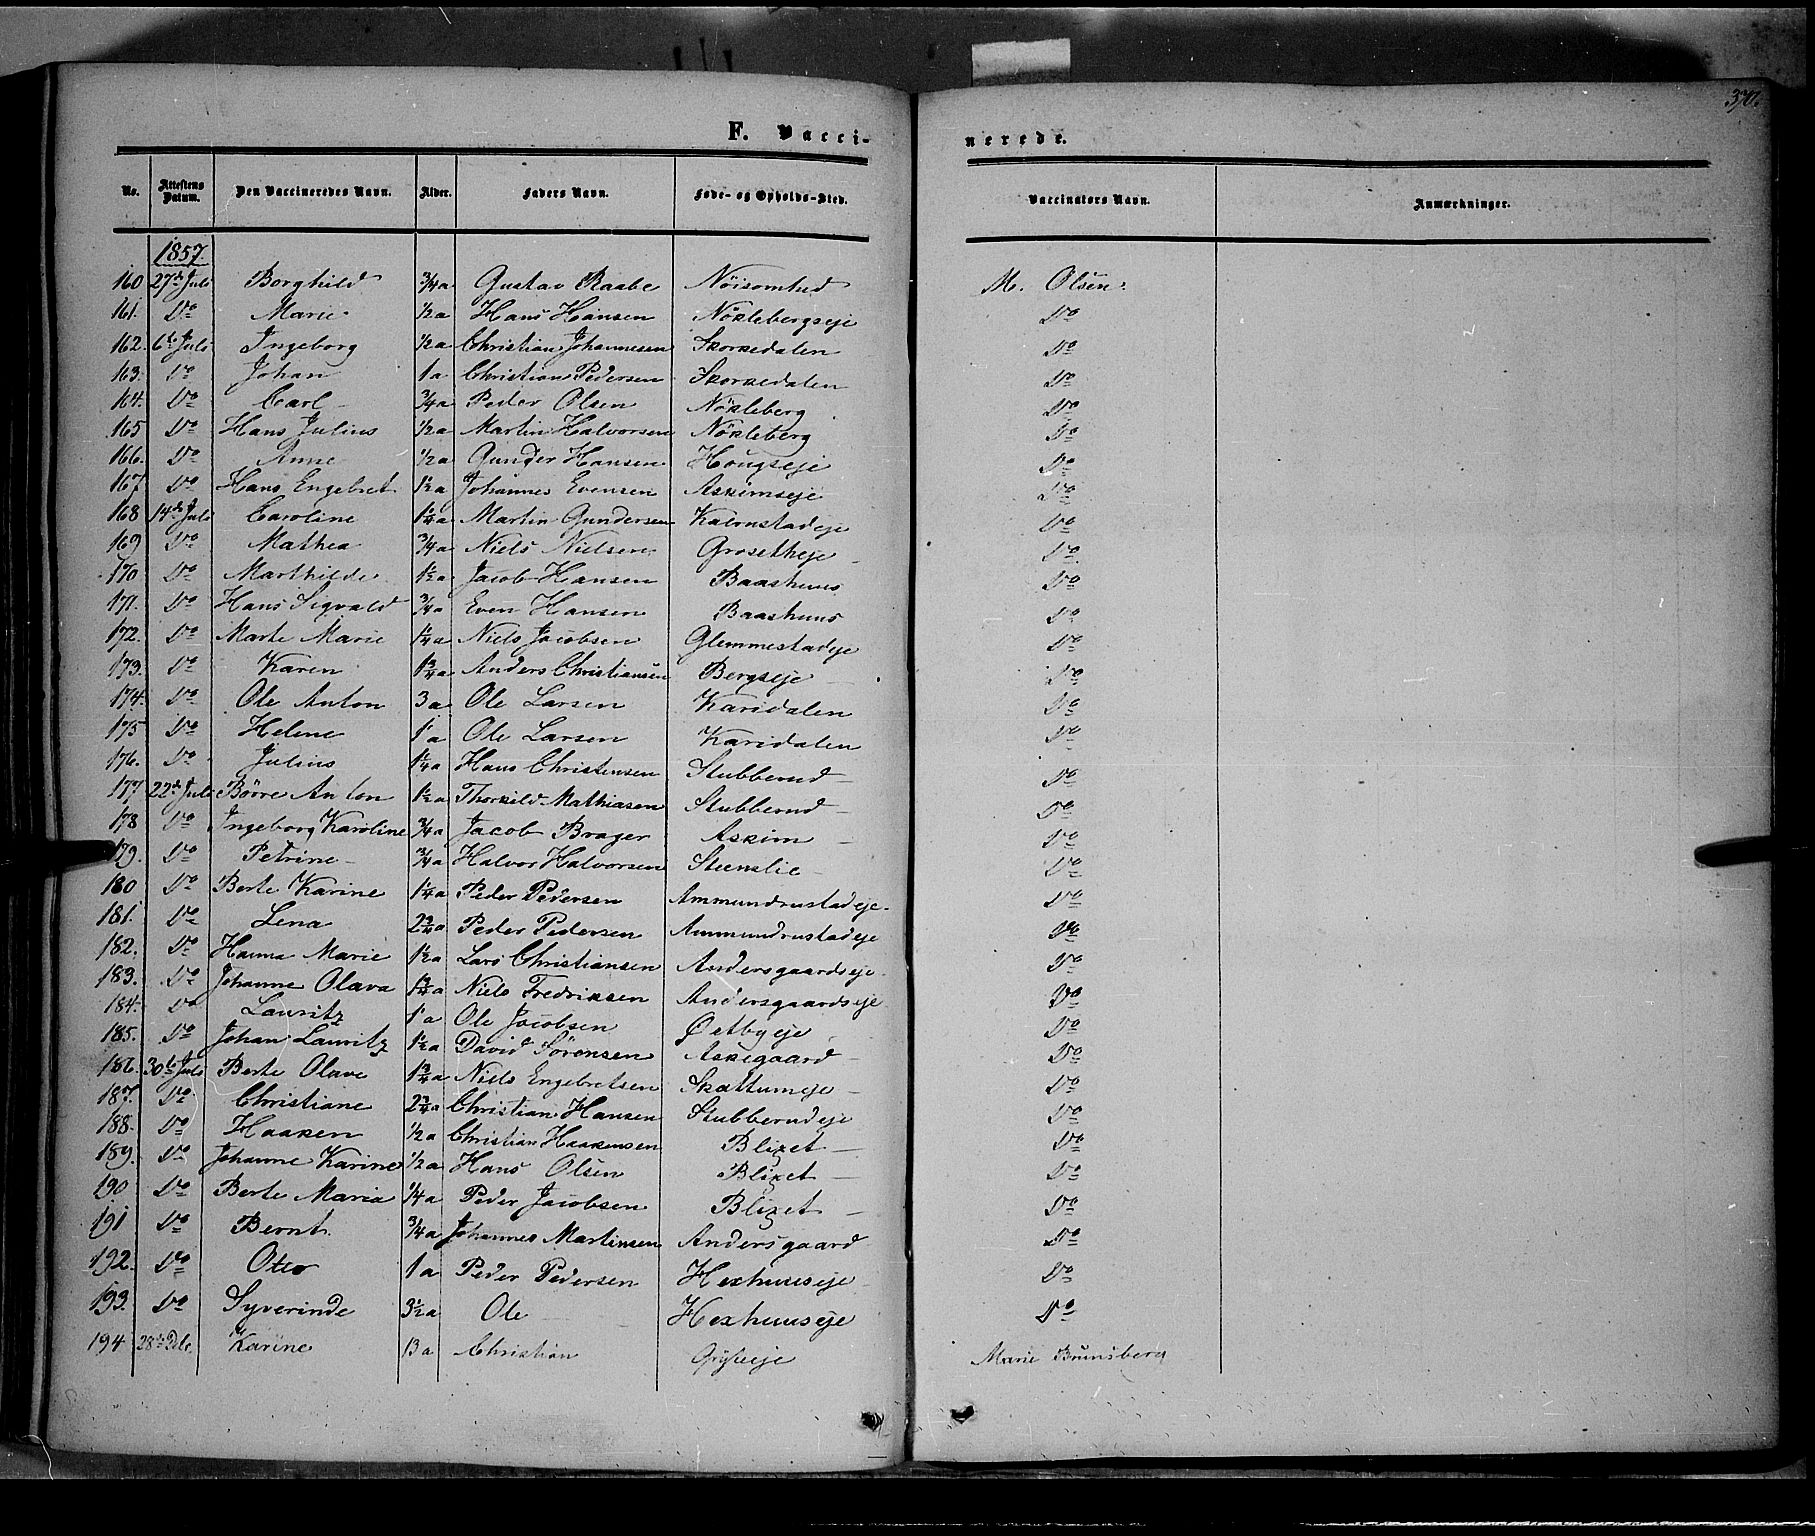 370.
F. Vacci-
nerede.
No.
Attestens Datum.
Den Vaccineredes Navn.
Alder.
Faders Navn.
Føde- og Opholds-Sted.
Vaccinators Navn.
Anmærkninger.
1857.
160 27de Juli Borghild 3/4 a Gustav Raabe Nöisomhed M. Olsen.
161. Do Marie 1/2 a Hans Hansen Nöklebergseje Do
162. 6te Juli Ingeborg 1/2 a Christian Johannesen Skorkedalen Do
163. Do Johan 1 a Christian Pedersen Skorkedalen Do
164. Do Carl 3/4 a Peder Olsen Nökleberg Do
165 Do Hans Julius 1/2 a Martin Halvorsen Nökleberg Do
166. Do Anne 1/2 a Gunder Hansen Hougseje Do
167. Do Hans Engebret 1 1/2 a Johannes Evensen Askimseje Do
168 14de Juli Caroline 1 1/4 a Martin Gundersen Kalrnstadeje Do
169 Do Mathea 3/4 a Niels Nielsen Grosetheje Do
170 Do Marthilde 1 1/2 a Jacob Hansen Baashuus Do
171. Do Hans Sigvald 3/4 a Even Hansen Baashuus Do
172. Do Marte Marie 1 1/4 a Niels Jacobsen Glemmestadeje Do
173. Do Karen 1 3/4 a Anders Christiansen Bergseje Do
174. Do Ole Anton 3 a Ole Larsen Karidalen Do
175 Do Helene 1 a Ole Larsen Karidalen Do
176. Do Julius 1 1/4 a Hans Christensen Stubberud Do
177 22de Juli Börre Anton 1 1/2 a Thorkild Mathiasen Stubberud Do
178 Do Ingeborg Karoline 3/4 a Jacob Brager Askim Do
179. Do Petrine 3/4 a Halvor Halvorsen Steenslie Do
180 Do Berte Karine 1 1/4 a Peder Pedersen Ammundrustadeje Do
181. Do Lena 2 3/4 a Peder Pedersen Ammundrustadeje Do
182. Do Hanna Marie 1 1/2 a Lars Christiansen Andersgaardseje Do
183. Do Johanne Olava 1 3/4 a Niels Fredriksen Andersgaardseje Do
184. Do Lauritz 1 a Ole Jacobsen Østbyeje Do
185. Do Johan Lauritz 1 1/2 a David Sörensen Askegaard Do
186. 30te Juli Berte Olave 1 3/4 a Niels Engebretsen Skattumeje Do
187. Do Christiane 2 3/4 a Christian Hansen Stubberudeje Do
188. Do Haaken 1/2 a Christian Haakensen Blixet Do
189. Do Johanne Karine 1/2 a Hans Olsen Blixet Do
190 Do Berte Maria 1/4 a Peder Jacobsen Blixet Do
191 Do Bernt 3/4 a Johannes Martinsen Andersgaard Do
192. Do Otto 1 a Peder Pedersen Hexhuuseje Do
193. Do Syverinde 3 1/2 a Ole Hexhuuseje Do
194 28de Karine 13 a Christian Marie Brunsberg